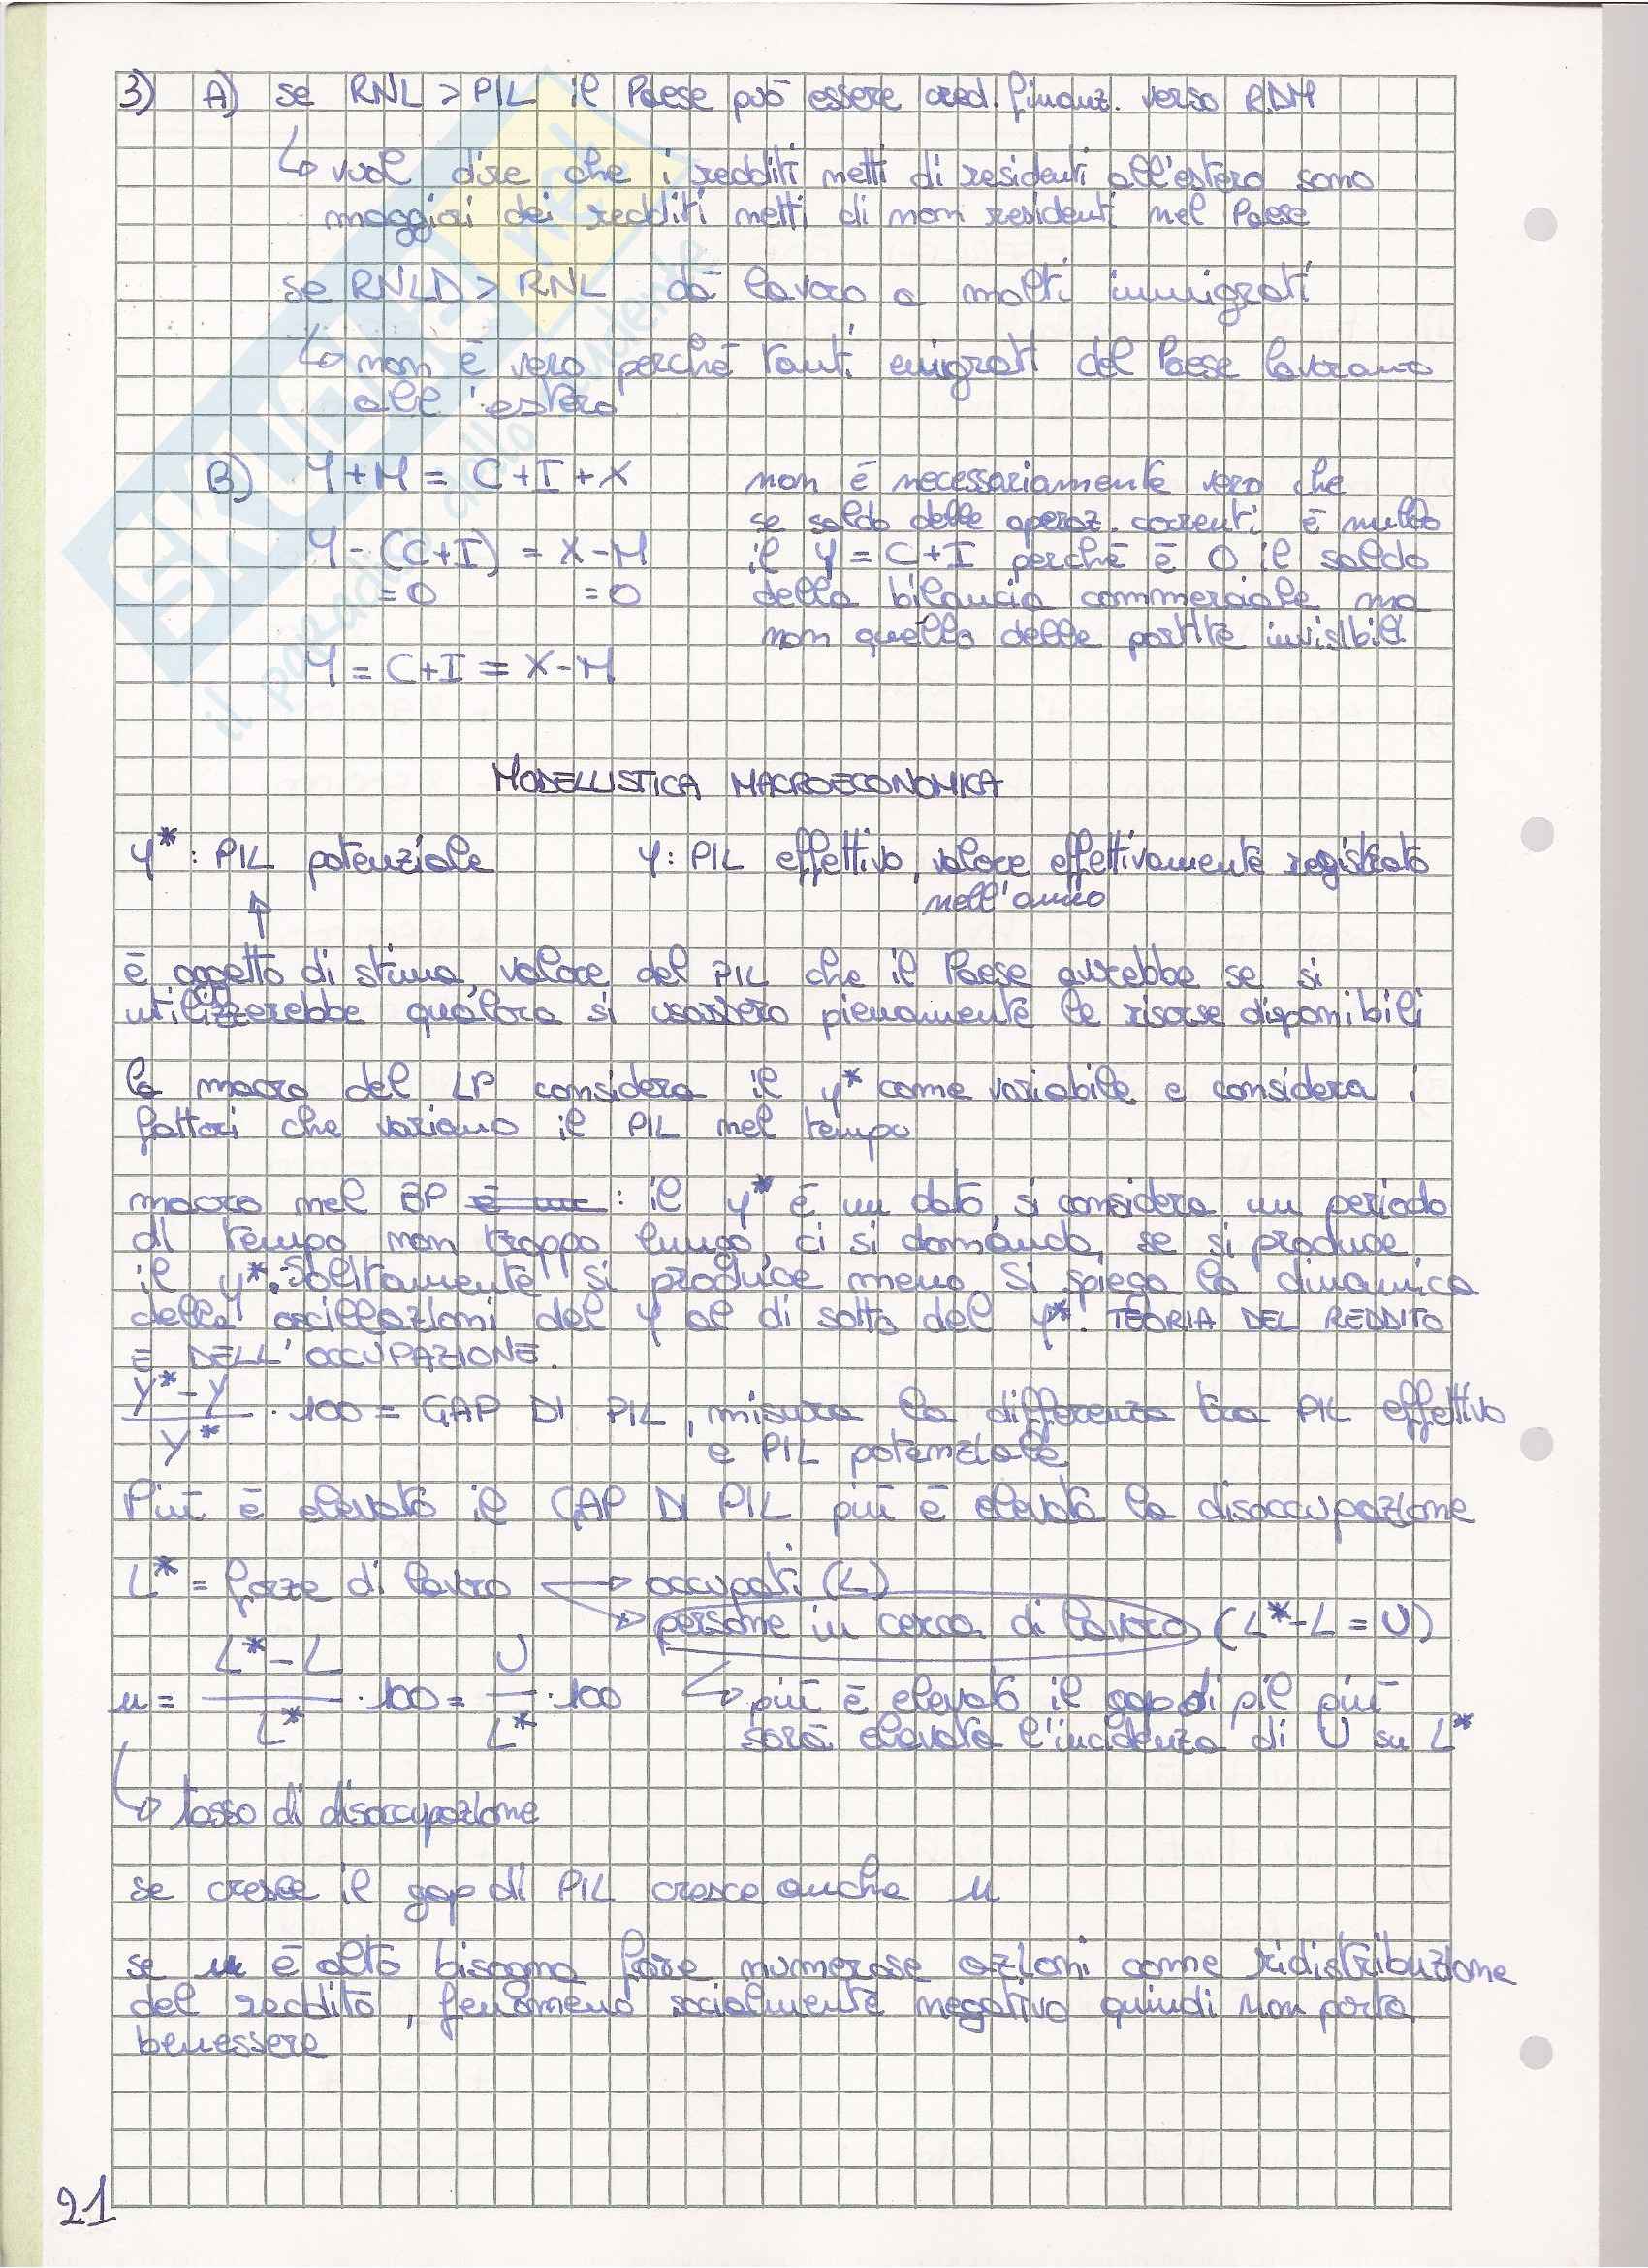 3) A) se RNL > PIL il Paese può essere cred. finanz. verso RDM
↳ vuol dire che i redditi netti di residenti all'estero sono
maggiori dei redditi netti di non residenti nel Paese
se RNLD > RNL dà lavoro a molti immigrati
↳ non è vero perché tanti emigrati del Paese lavorano
all'estero
B) Y + M = C + I + X non è necessariamente vero che
se saldo delle operaz. correnti è nullo
Y - (C+I) = X - M il Y = C + I perché è 0 il saldo
= 0 = 0 della bilancia commerciale ma
non quello delle partite invisibili
Y = C + I = X - M
MODELLISTICA MACROECONOMICA
Y* : PIL potenziale Y : PIL effettivo, valore effettivamente registrato
nell'anno
↑
è oggetto di stima, valore del PIL che il Paese avrebbe se si
utilizzerebbe qualora si usassero pienamente le risorse disponibili
la macro del LP considera il Y* come variabile e considera i
fattori che variano il PIL nel tempo
macro nel BP : il Y* è un dato, si considera un periodo
di tempo non troppo lungo, ci si domanda se si produce
il Y*. Solitamente si produce meno. Si spiega la dinamica
delle oscillazioni del Y al di sotto del Y*. TEORIA DEL REDDITO
E DELL'OCCUPAZIONE.
Y* - Y / Y* · 100 = GAP DI PIL, misura la differenza tra PIL effettivo
e PIL potenziale
Più è elevato il GAP DI PIL più è elevata la disoccupazione
L* = forze di lavoro → occupati (L)
→ persone in cerca di lavoro (L* - L = U)
u = L* - L / L* · 100 = U / L* · 100 ↳ più è elevato il gap di pil più
sarà elevata l'incidenza di U su L*
↳ tasso di disoccupazione
se cresce il gap di PIL cresce anche u
se u è alto bisogna fare numerose azioni come ridistribuzione
del reddito, fenomeno socialmente negativo quindi non porta
benessere
21
SKUOLA.net
il paradiso dello studente